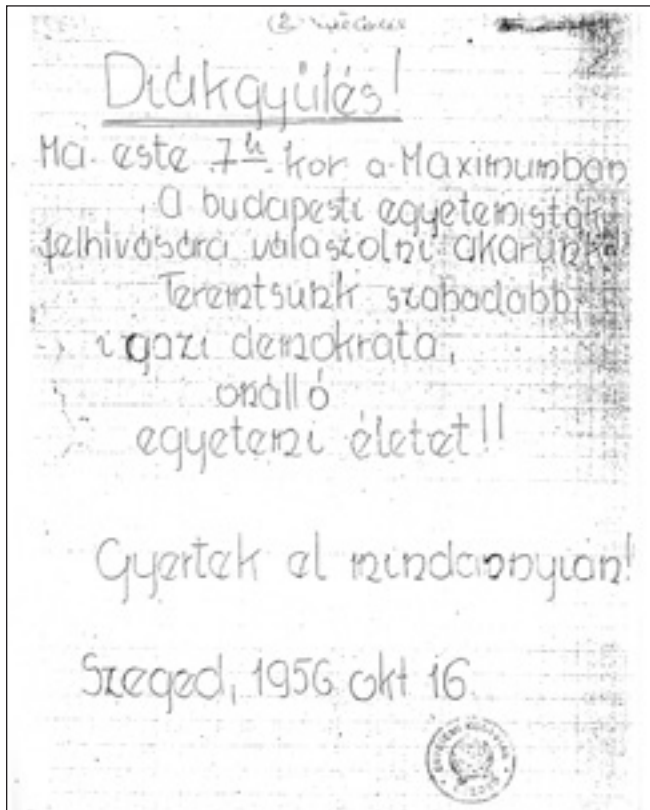 Diákgyülés!
Ma este 7h kor a Maximumban
A budapesti egyetemisták
felhivására válaszolni akarunk!
Teremtsünk szabadabb,
igazi demokrata,
önálló
egyetemi életet!!
Gyertek el mindannyian!
Szeged, 1956 okt 16.